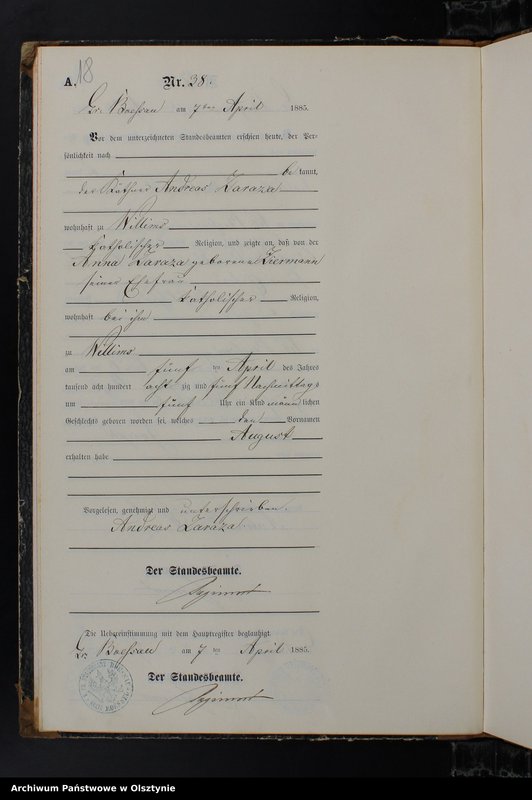 18
A. Nr. 38.
Gr. am 7ten April 1885.
Vor dem unterzeichneten Standesbeamten erschien heute, der Per-
sönlichkeit nach
be kannt,
der Käthner Andreas Zaraza
wohnhaft zu Willims
katholischer Religion, und zeigte an, daß von der
Anna Zaraza geborenen Ziermann
seiner Ehefrau
katholischer Religion,
wohnhaft bei ihm
zu Willims
am fünf ten April des Jahres
tausend acht hundert acht zig und fünf Nachmittags
um fünf Uhr ein Kind männ lichen
Geschlechts geboren worden sei, welches den Vornamen
August
erhalten habe
Vorgelesen, genehmigt und unterschrieben.
Andreas Zaraza.
Der Standesbeamte.
Die Uebereinstimmung mit dem Hauptregister beglaubigt.
Gr. am 7 ten April 1885.
Der Standesbeamte.
Archiwum Państwowe w Olsztynie